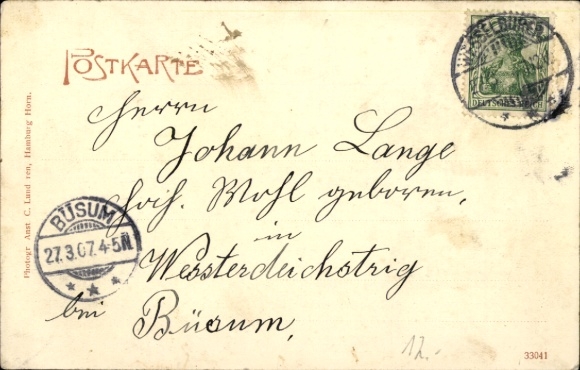 POSTKARTE
WESSELBUREN
DEUTSCHES REICH
Herrn
Johann Lange
Hoih. Wohl geboren,
in
Wessterdeichstrig
bei Büsum,
BÜSUM
27.3.07.4-5N
Photogr Anst C. Lund ren, Hamburg Horn.
12.-
33041